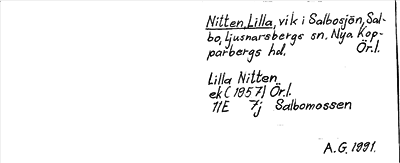 Nitten, Lilla, vik i Salbosjön, Sal-
bo, Ljusnarsbergs sn, Nya Kop-
parbergs hd, Ör.l.
Lilla Nitten
ek (1957) Ör.l.
11E 7j Salbomossen
A.G. 1991.